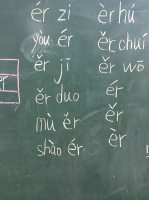 ér zi
yòu ér
ěr jī
ěr duo
mù ěr
shào ér
èr hú
ěr chuí
ěr wō
ér
ěr
èr